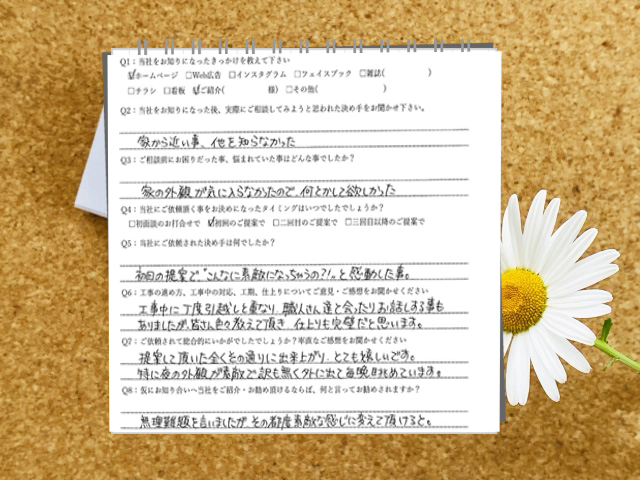 Q1：当社をお知りになったきっかけを教えて下さい
☑ホームページ　□Web広告　□インスタグラム　□フェイスブック　□雑誌(　　　　　)
□チラシ　□看板　☑ご紹介(　　　　　様)　□その他(　　　　　　　　)
Q2：当社をお知りになった後、実際にご相談してみようと思われた決め手をお聞かせ下さい。
家から近い事、他を知らなかった
Q3：ご相談前にお困りだった事、悩まれていた事はどんな事でしたか？
家の外観が気に入らなかったので、何とかして欲しかった
Q4：当社にご依頼頂く事をお決めになったタイミングはいつでしたでしょうか？
□初面談のお打合せで　☑初回のご提案で　□二回目のご提案で　□三回目以降のご提案で
Q5：当社にご依頼された決め手は何でしたか？
初回の提案で“こんなに素敵になっちゃうの?!”と感動した事。
Q6：工事の進め方、工事中の対応、工期、仕上りについてご意見・ご感想をお聞かせください
工事中に丁度引越しと重なり、職人さん達と会ったりお話しする事も
ありましたが、皆さん色々教えて頂き、仕上りも完璧だと思います。
Q7：ご依頼されて総合的にいかがでしたでしょうか？率直なご感想をお聞かせください
提案して頂いた全くその通りに出来上がり、とても嬉しいです。
特に夜の外観が素敵で訳も無く外に出て毎晩眺めています。
Q8：仮にお知り合いへ当社をご紹介・お勧め頂けるならば、何と言ってお勧めされますか？
無理難題を言いましたが、その都度素敵な感じに変えて頂けると。